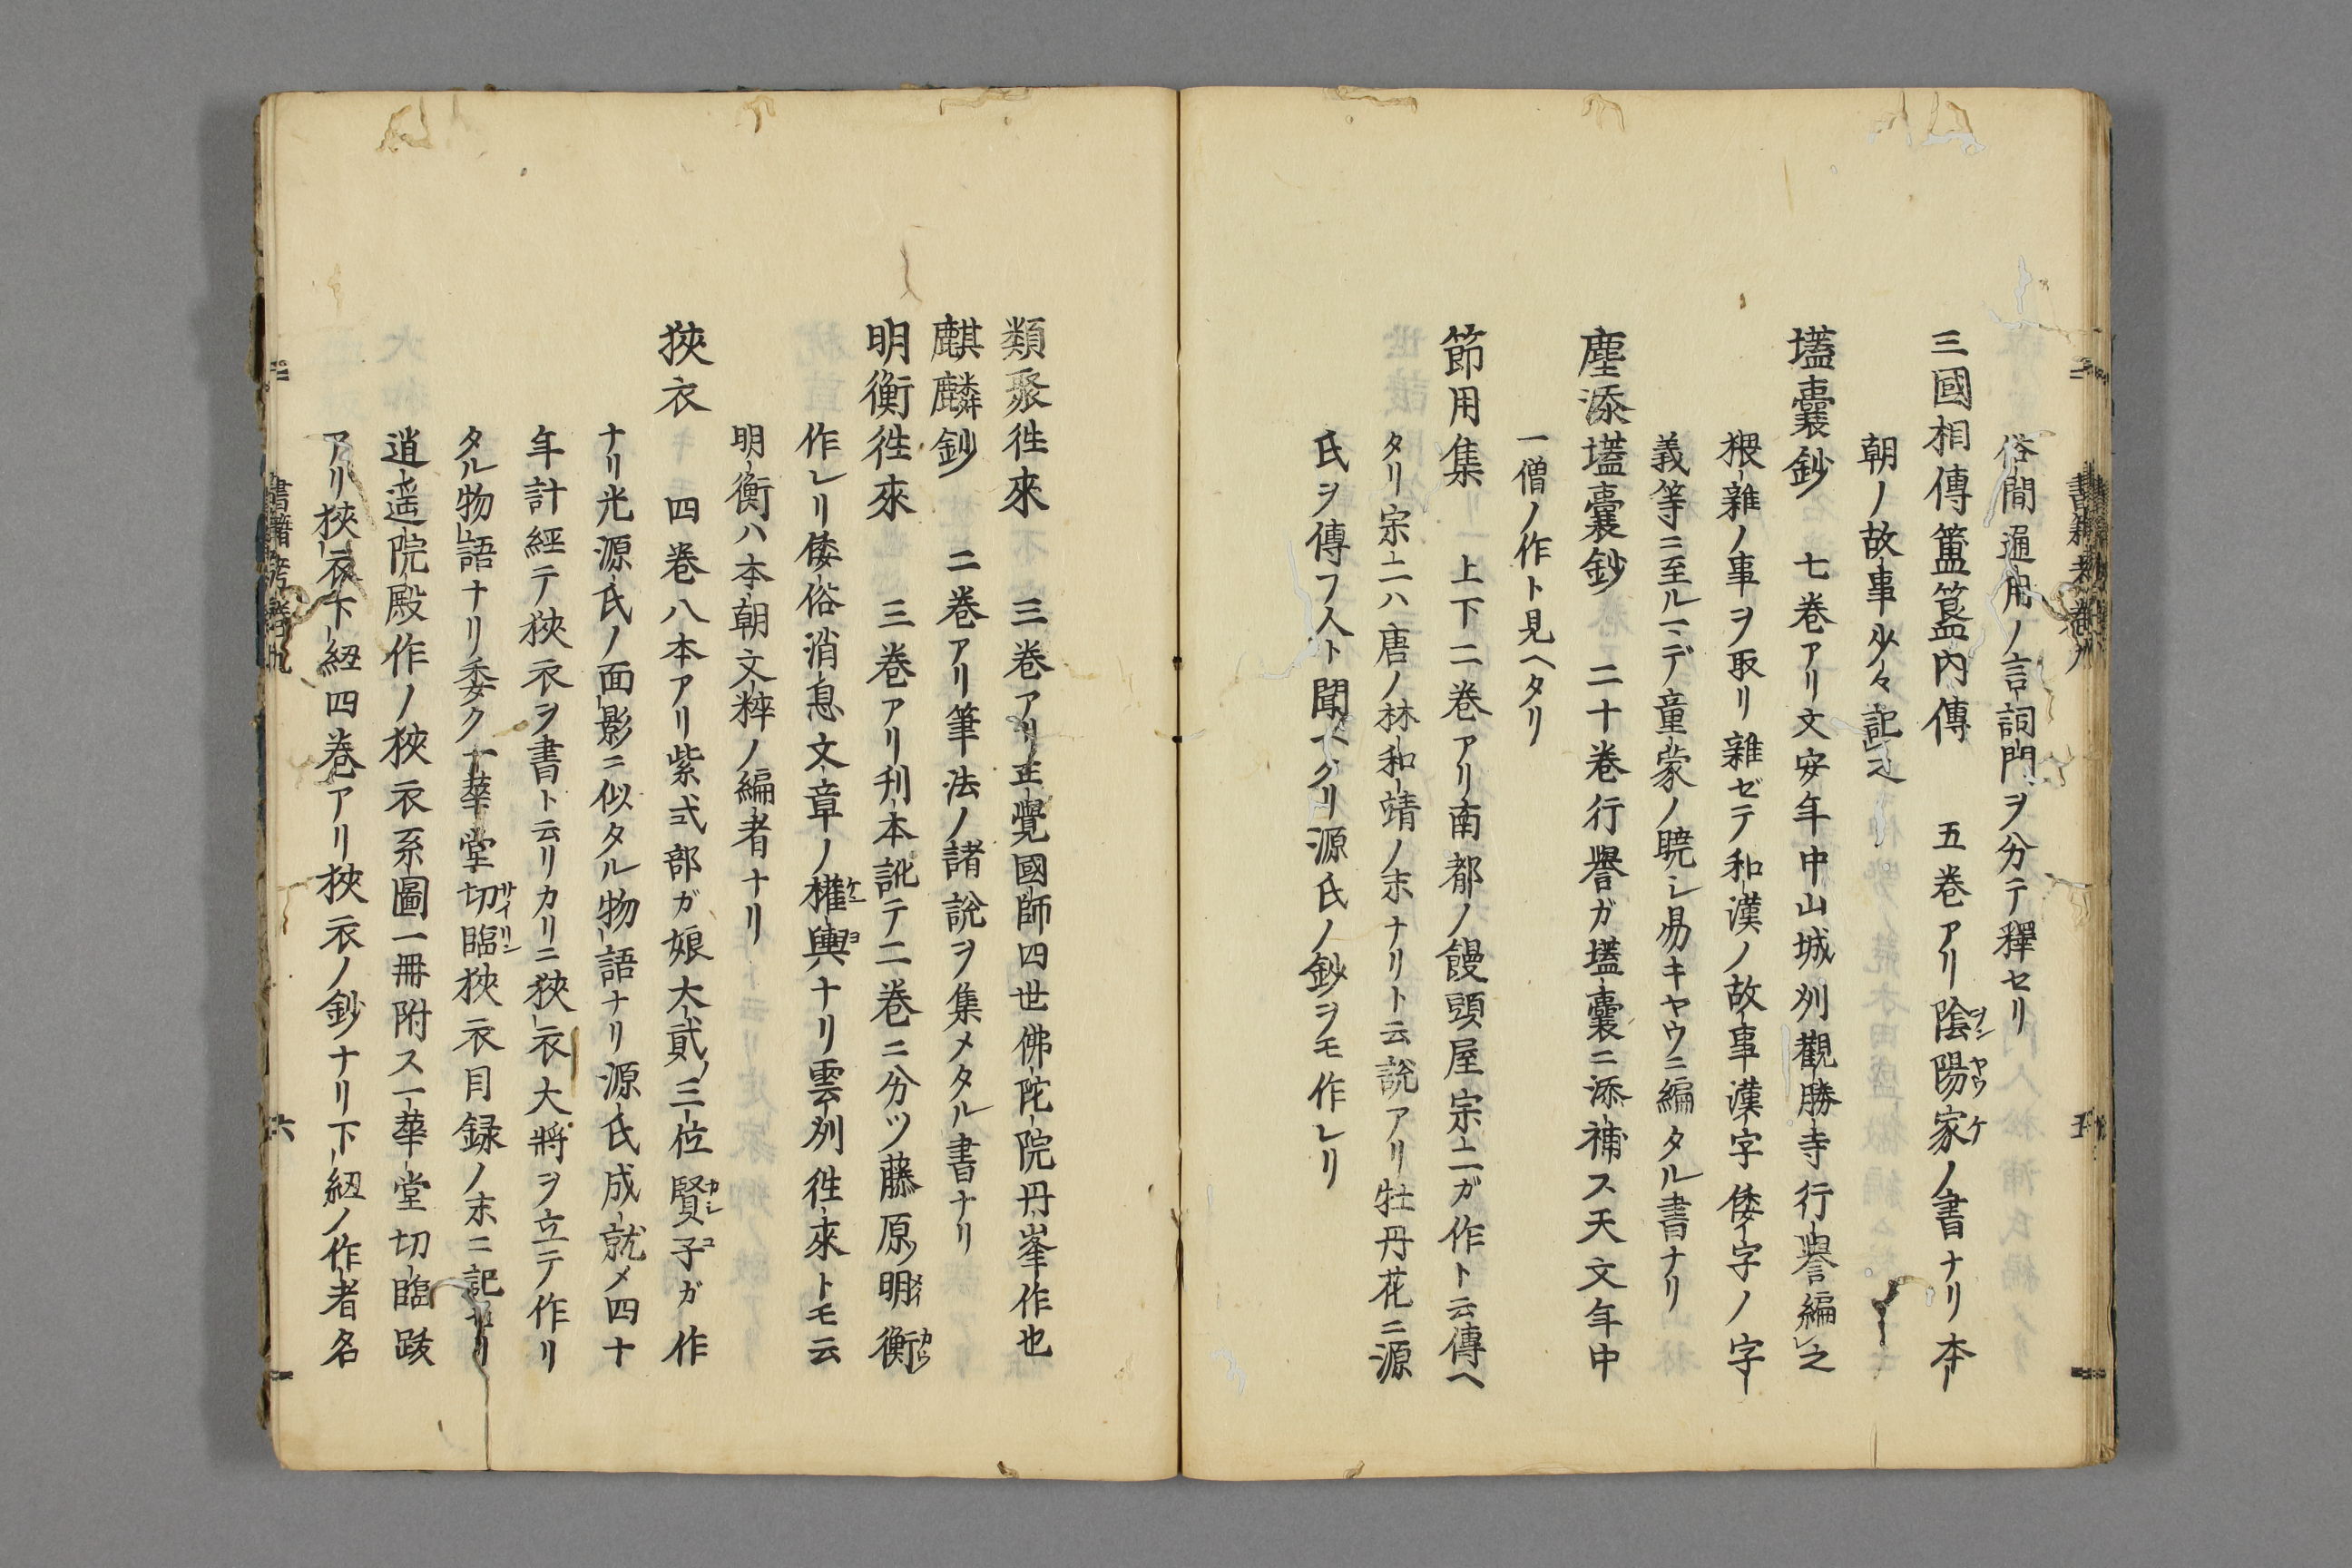 俗間通用ノ言詞門ヲ分テ釋セリ
三國相傳簠簋内傳　五巻アリ陰陽家ノ書ナリ本
朝ノ故事少々記之
壒囊鈔　七巻アリ文安年中山城州觀勝寺行譽編之
猥雜ノ事ヲ取リ雜ゼテ和漢ノ故事漢字倭字ノ字
義等ニ至ルマデ童蒙ノ曉シ易キヤウニ編タル書ナリ
塵添壒囊鈔　二十巻行譽ガ壒囊ニ添補ス天文年中
一僧ノ作ト見ヘタリ
節用集　上下二巻アリ南都ノ饅頭屋宗二ガ作ト云傳ヘ
タリ宗二ハ唐ノ林和靖ノ末ナリト云説アリ牡丹花ニ源
氏ヲ傳フ人ト聞ヘタリ源氏ノ鈔ヲモ作レリ
類聚徃來　三巻アリ正覺國師四世佛陀院丹峯作也
麒麟鈔　二巻アリ筆法ノ諸説ヲ集メタル書ナリ
明衡徃來　三巻アリ刊本訛テ二巻ニ分ツ藤原明衡
作レリ倭俗消息文章ノ權輿ナリ雲州徃來トモ云
明衡ハ本朝文粹ノ編者ナリ
狹衣　四巻八本アリ紫式部ガ娘大貳三位賢子ガ作
ナリ光源氏ノ面影ニ似タル物語ナリ源氏成就メ四十
年計經テ狹衣ヲ書ト云リカリニ狹衣大將ヲ立テ作リ
タル物語ナリ委ク一華堂切臨狹衣目録ノ末ニ記セリ
逍遥院殿作ノ狹衣系圖一冊附ス一華堂切臨跋
アリ狹衣下紐四巻アリ狹衣ノ鈔ナリ下紐ノ作者名
書籍考 巻九
六